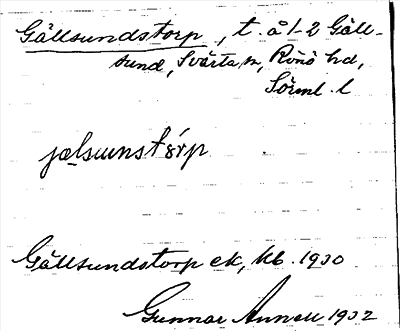 Gällsundstorp, t. å 1-2 Gäll-
sund, Svärta sn, Rönö hd,
Sörml. l
jælsunstórp
Gällsundstorp ek, kb. 1930
Gunnar Annell 1932